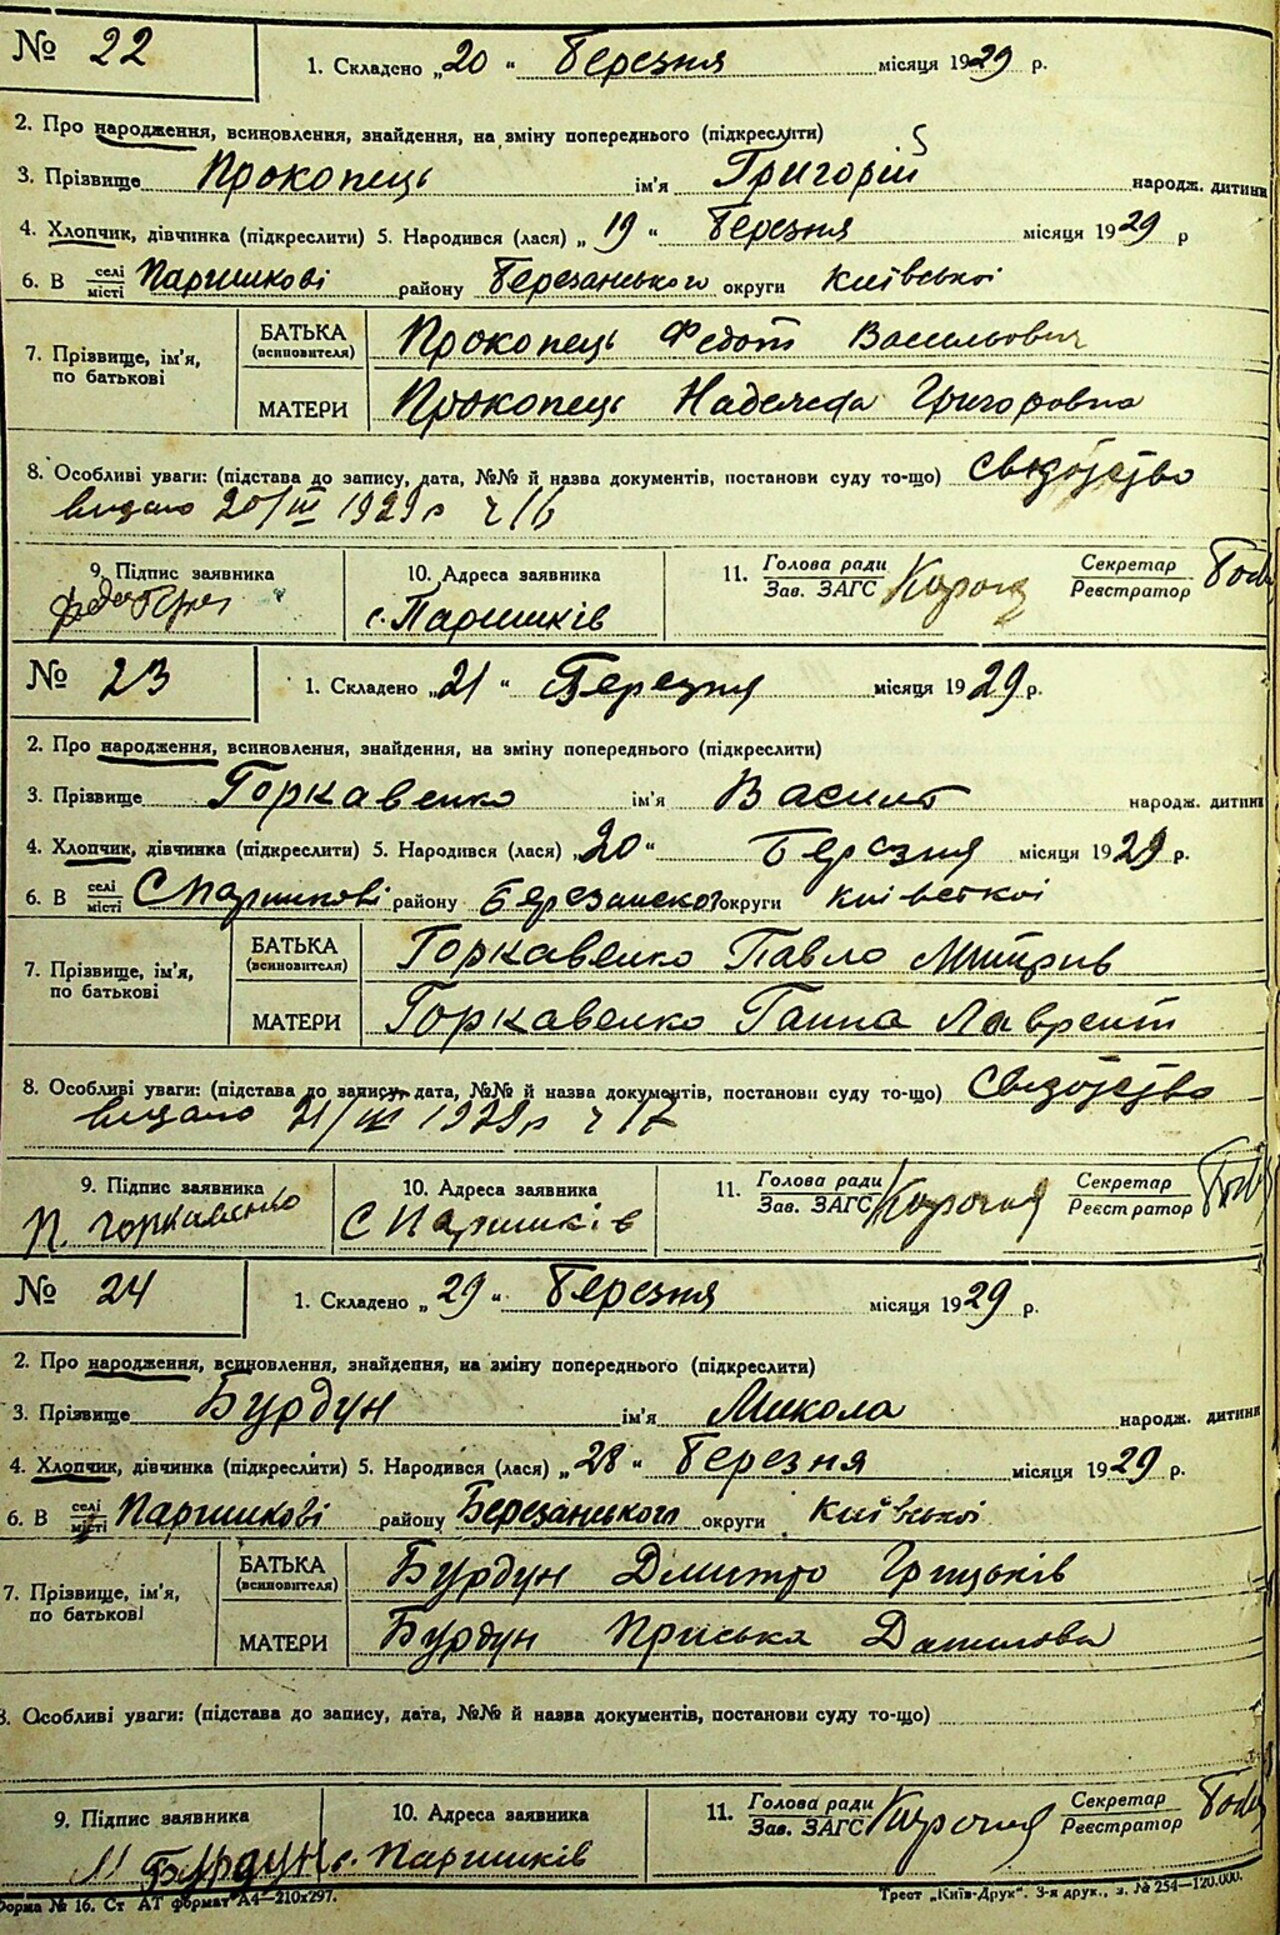 № 22
1. Складено „20“ Березня місяця 1929 р.
2. Про народження, всиновлення, знайдення, на зміну попереднього (підкреслити)
3. Прізвище Прокопець ім'я Григорій народж. дитини
4. Хлопчик, дівчинка (підкреслити) 5. Народився (лася) „19“ Березня місяця 1929 р
6. В селі місті Паришкові району Березанського округи Київської
7. Прізвище, ім'я, по батькові БАТЬКА (всиновителя) Прокопець Федот Васильович
МАТЕРИ Прокопець Надежда Григоровна
8. Особливі уваги: (підстава до запису, дата, №№ й назва документів, постанови суду то-що) Свідоцтво
видано 20/III 1929 р ч 16
9. Підпис заявника 10. Адреса заявника 11. Голова ради Зав. ЗАГС Секретар Реєстратор
с. Паришків
№ 23
1. Складено „21“ Березня місяця 1929 р.
2. Про народження, всиновлення, знайдення, на зміну попереднього (підкреслити)
3. Прізвище Горкавенко ім'я Василь народж. дитини
4. Хлопчик, дівчинка (підкреслити) 5. Народився (лася) „20“ Березня місяця 1929 р.
6. В селі місті С Паришкові району округи
7. Прізвище, ім'я, по батькові БАТЬКА (всиновителя) Горкавенко Павло Митрів
МАТЕРИ Горкавенко Ганна Лаврент
8. Особливі уваги: (підстава до запису, дата, №№ й назва документів, постанови суду то-що) Свідоцтво
видано 21/III 1929 р ч 17
9. Підпис заявника 10. Адреса заявника 11. Голова ради Зав. ЗАГС Секретар Реєстратор
П. Горкавенко С Паришків
№ 24
1. Складено „29“ Березня місяця 1929 р.
2. Про народження, всиновлення, знайдення, на зміну попереднього (підкреслити)
3. Прізвище Бурдун ім'я Микола народж. дитини
4. Хлопчик, дівчинка (підкреслити) 5. Народився (лася) „28“ Березня місяця 1929 р.
6. В селі місті Паришкові району Березанського округи Київської
7. Прізвище, ім'я, по батькові БАТЬКА (всиновителя) Бурдун Дмитро Грицьків
МАТЕРИ Бурдун Приська Данилова
8. Особливі уваги: (підстава до запису, дата, №№ й назва документів, постанови суду то-що)
9. Підпис заявника 10. Адреса заявника 11. Голова ради Зав. ЗАГС Секретар Реєстратор
Бурдун с. Паришків
Форма № 16. Ст АТ формат А4—210х297. Трест „Київ-Друк“. 3-я друк., з. № 254—120.000.